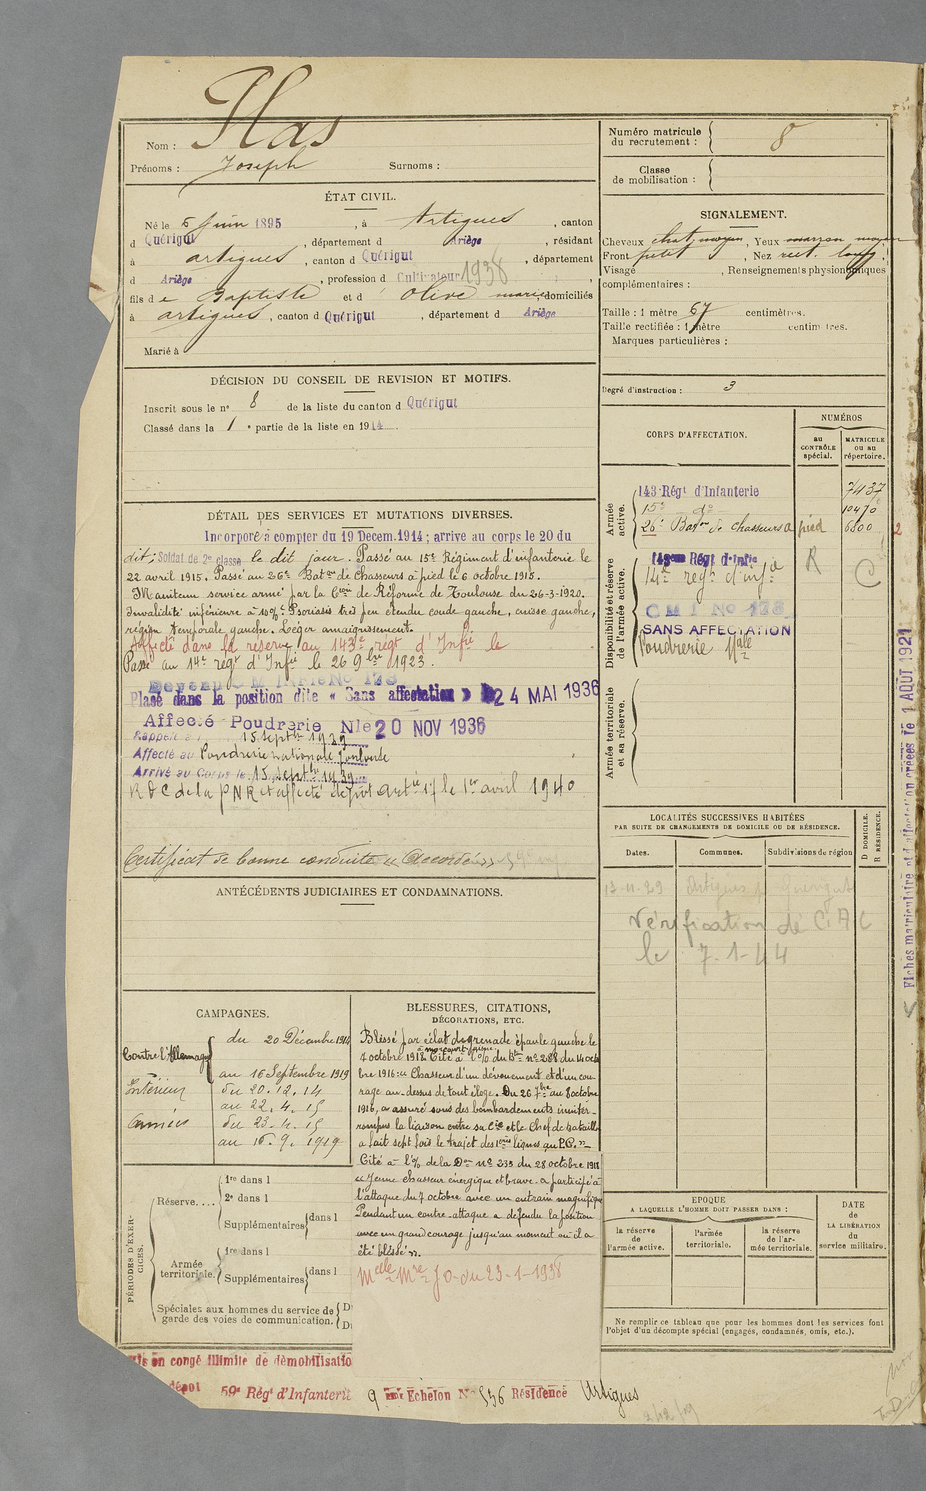 Nom : Ilas
Prénoms : Joseph Surnoms :
Numéro matricule du recrutement : 8
Classe de mobilisation :
ÉTAT CIVIL.
Né le 5 Juin 1895, à Artigues, canton
d Quérigut, département d Ariège, résidant
à artigues, canton d Quérigut, département
d Ariège, profession d Cultivateur 1938
fils d e Baptiste et d Olive marie domiciliés
à artigues, canton d Quérigut, département d Ariège
Marié à
SIGNALEMENT.
Cheveux chat. moyen, Yeux marron moyen
Front petit, Nez rect. long,
Visage , Renseignements physionomiques
complémentaires :
Taille : 1 mètre 67 centimètres.
Taille rectifiée : 1 mètre centimètres.
Marques particulières :
Degré d'instruction : 3
DÉCISION DU CONSEIL DE REVISION ET MOTIFS.
Inscrit sous le n° 8 de la liste du canton d Quérigut
Classé dans la 1 e partie de la liste en 1914.
DÉTAIL DES SERVICES ET MUTATIONS DIVERSES.
Incorporé à compter du 19 Décem. 1914 ; arrive au corps le 20 du
dit ; Soldat de 2e classe le dit jour. Passé au 15e Régiment d'infanterie le
22 avril 1915. Passé au 26e Baton de Chasseurs à pied le 6 octobre 1915.
Maintenu service armé par la Cion de Réforme de Toulouse du 26-3-1920.
Invalidité inférieure à 10% : Psoriasis très peu étendu coude gauche, cuisse gauche,
région temporale gauche. Léger amaigrissement.
Affecté dans la réserve au 143e régt d'Infie le
Passé au 14e régt d'Infie le 26 9bre 1923.
Devenu C M INFIE No 178
Placé dans la position dite « Sans affectation » 24 MAI 1936
Affecté Poudrerie Nle 20 NOV 1936
Rappelé le 15 septbre 1939
Affecté au Poudrerie nationale Toulouse
Arrivé au Corps le 15 septbre 1939
R D C de la PNR et affecté dépôt artie 17 le 1er avril 1940
Certificat de bonne conduite « Accordé »
ANTÉCÉDENTS JUDICIAIRES ET CONDAMNATIONS.
CORPS D'AFFECTATION.
NUMÉROS
au CONTRÔLE spécial.
MATRICULE ou au répertoire.
Armée active.
143 Régt d'Infanterie 7437
15e do 10470
26e Baton de chasseurs à pied 6800
2
Disponibilité et réserve de l'armée active.
143eme Régt d'Infie R
14e regt d'infie C
C M I No 178
SANS AFFECTATION
Poudrerie Nale
Armée territoriale et sa réserve.
LOCALITÉS SUCCESSIVES HABITÉES
PAR SUITE DE CHANGEMENTS DE DOMICILE OU DE RÉSIDENCE.
Dates. Communes. Subdivisions de région
D DOMICILE.
R RÉSIDENCE.
13-11-29 Artigues Quérigut
Vérification de
le 7-1-44
Fiches matriculaire et d'affectation créées le 1 AOUT 1921
CAMPAGNES.
Contre l'Allemagne
du 20 Décembre 1914
au 16 Septembre 1919
Intérieur
du 20.12.14
au 22.4.15
Armées
du 23.4.15
au 16.9.1919
BLESSURES, CITATIONS,
DÉCORATIONS, ETC.
Bléssé par éclat de grenade épaule gauche le
7 octobre 1918. Cité à l'o/o du Bon no 288 du 14 octo
bre 1916 : « Chasseur d'un dévouement et d'un cou-
rage au-dessus de tout éloge. Du 26 7bre au 8 octobre
1916, a assuré sous des bombardements ininter-
rompus la liaison entre sa Cie et le Chef de bataillon
a fait sept fois le trajet des 1ères lignes au P.C. »
Cité à l'o/o de la Don no 235 du 28 octobre 1918
« Jeune chasseur énergique et brave. a participé à
l'attaque du 7 octobre avec un entrain magnifique
Pendant une contre-attaque a défendu la position
avec un grand courage jusqu'au moment où il a
été bléssé ».
Melle Mre J.O. du 23-1-1938
PÉRIODES D'EXERCICES.
Réserve....
1re dans l
2e dans l
Supplémentaires dans l
Armée territoriale.
1re dans l
Supplémentaires dans l
Spéciales aux hommes du service de garde des voies de communication.
EPOQUE
A LAQUELLE L'HOMME DOIT PASSER DANS :
la réserve de l'armée active.
l'armée territoriale.
la réserve de l'armée territoriale.
DATE de LA LIBÉRATION du service militaire.
Ne remplir ce tableau que pour les hommes dont les services font
l'objet d'un décompte spécial (engagés, condamnés, omis, etc.).
en congé illimité de démobilisatio
dépôt 59e Régt d'Infanterie 9 eme Echelon No 556 Résidence Artigues